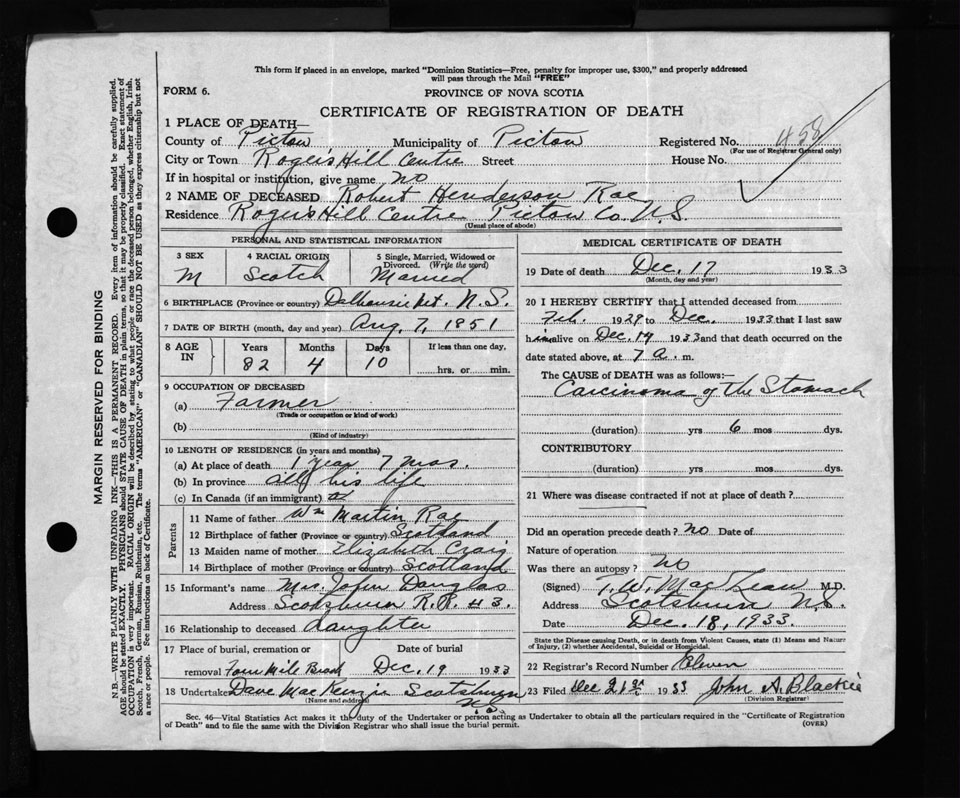 This form if placed in an envelope, marked "Dominion Statistics—Free, penalty for improper use, $300," and properly addressed
will pass through the Mail "FREE"
FORM 6.
PROVINCE OF NOVA SCOTIA
CERTIFICATE OF REGISTRATION OF DEATH
1 PLACE OF DEATH—
County of Pictou Municipality of Pictou Registered No. 458
(For use of Registrar General only)
City or Town Rogers Hill Centre Street House No.
If in hospital or institution, give name no
2 NAME OF DECEASED Robert Henderson Rae
Residence Rogers Hill Centre Pictou Co. N.S.
(Usual place of abode)
PERSONAL AND STATISTICAL INFORMATION
3 SEX 4 RACIAL ORIGIN 5 Single, Married, Widowed or
Divorced. (Write the word)
M Scotch Married
6 BIRTHPLACE (Province or country) Dalhousie N.S.
7 DATE OF BIRTH (month, day and year) Aug. 7, 1851
8 AGE IN Years Months Days If less than one day,
82 4 10 hrs. or min.
9 OCCUPATION OF DECEASED
(a) Farmer
(Trade or occupation or kind of work)
(b)
(Kind of industry)
10 LENGTH OF RESIDENCE (in years and months)
(a) At place of death 1 year 7 mos.
(b) In province all his life
(c) In Canada (if an immigrant)
Parents
11 Name of father Wm Martin Rae
12 Birthplace of father (Province or country) Scotland
13 Maiden name of mother Elizabeth Craig
14 Birthplace of mother (Province or country) Scotland
15 Informant's name Mrs. John Douglas
Address Scotsburn R.R. #3.
16 Relationship to deceased daughter
17 Place of burial, cremation or Date of burial
removal Four Mile Brook Dec. 19 1933
18 Undertaker Dave MacKenzie Scotsburn
(Name and address) N.S.
MEDICAL CERTIFICATE OF DEATH
19 Date of death Dec. 17 1933
(Month, day and year)
20 I HEREBY CERTIFY that I attended deceased from
Feb. 1929 to Dec. 1933 that I last saw
him alive on Dec 14 1933 and that death occurred on the
date stated above, at 7 a. m.
The CAUSE of DEATH was as follows:
Carcinoma of the Stomach
(duration) yrs 6 mos dys.
CONTRIBUTORY
(duration) yrs mos dys.
21 Where was disease contracted if not at place of death?
Did an operation precede death? no Date of
Nature of operation
Was there an autopsy? No
(Signed) T. W. MacLean M.D.
Address Scotsburn N.S.
Date Dec. 18, 1933.
State the Disease causing Death, or in death from Violent Causes, state (1) Means and Nature
of Injury, (2) whether Accidental, Suicidal or Homicidal.
22 Registrar's Record Number Eleven
23 Filed Dec 21st 1933 John A. Blackie
(Division Registrar)
Sec. 46—Vital Statistics Act makes it the duty of the Undertaker or person acting as Undertaker to obtain all the particulars required in the "Certificate of Registration
of Death" and to file the same with the Division Registrar who shall issue the burial permit. (OVER)
MARGIN RESERVED FOR BINDING
N.B.—WRITE PLAINLY WITH UNFADING INK—THIS IS A PERMANENT RECORD. Every item of information should be carefully supplied.
AGE should be stated EXACTLY. PHYSICIANS should STATE CAUSE OF DEATH in plain terms, so that it may be properly classified. Exact statement of
OCCUPATION is very important. RACIAL ORIGIN will be described by stating to what people or race the deceased person belonged, whether English, Irish,
Scotch, French, German, Russian, Ruthenian, etc. The terms "AMERICAN" or "CANADIAN" SHOULD NOT BE USED as they express citizenship but not
a race or people. See instructions on back of Certificate.